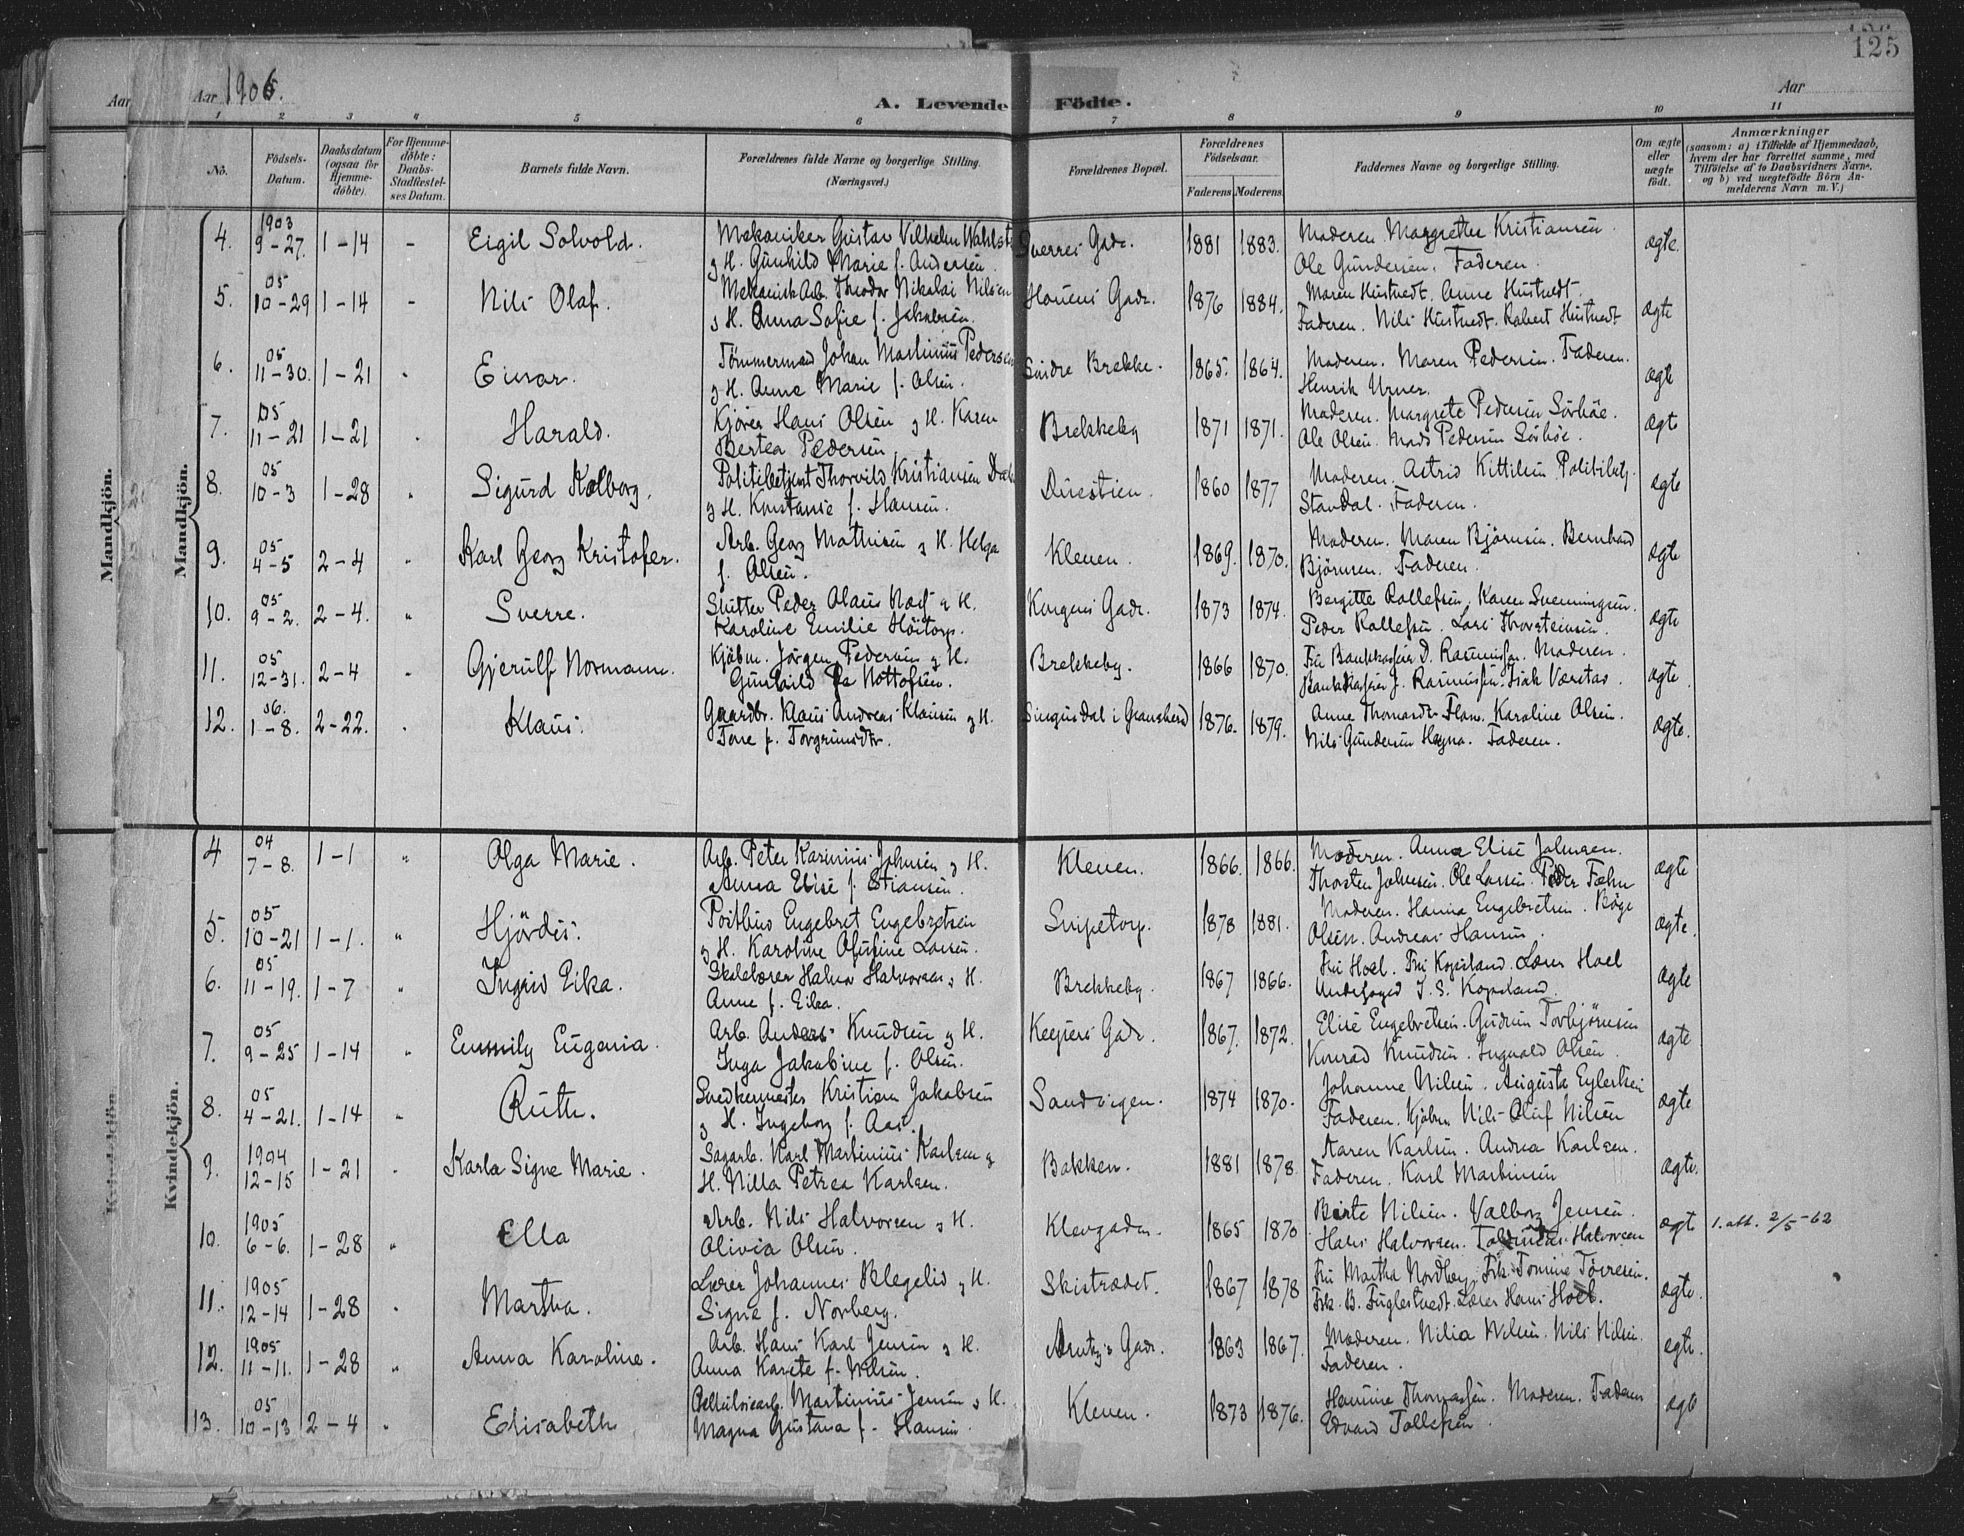 125
Aar 1906.
A. Levende Födte.
Aar
1 2 3 4 5 6 7 8 9 10 11
No.
Födsels-Datum.
Daabsdatum (ogsaa for Hjemme-döbte).
For Hjemme-döbte: Daabs-Stadfæstel-ses Datum.
Barnets fulde Navn.
Forældrenes fulde Navne og borgerlige Stilling. (Næringsvei.)
Forældrenes Bopæl.
Forældrenes Födselsaar.
Faderens. Moderens.
Faddernes Navne og borgerlige Stilling.
Om ægte eller uægte födt.
Anmærkninger
(saasom: a) i Tilfælde af Hjemmedaab, hvem der har forrettet samme, med Tilföielse af to Daabsvidners Navne, og b) ved uægtefödte Börn An-melderens Navn m. V.)
Mandkjön.
Mandkjön.
4. 1903 9-27. 1-14 - Eigil Solvold. Mekaniker Gustav Vilhelm Wahlst Sverres Gade. 1881 1883. Moderen. Margrethe Kristiansen. ægte.
g H. Gunhild Marie f. Andersen. Ole Gundersen. Faderen.
5. 05 10-29 1-14 - Nils Olaf. Mekanisk Arb. Theodor Nikolai Nilsen Houens Gade. 1876 1884. Maren Hustvedt. Anne Hustvedt. ægte
g H. Anna Sofie f. Jakobsen. Faderen. Nils Hustvedt. Robert Hustvedt
6. 05 11-30. 1-21 Einar. Tømmermand Johan Martinius Pedersen Søndre Brekke. 1865. 1864. Moderen. Maren Pedersen. Faderen. ægte
g H. Anne Marie f. Olsen. Henrik Urner.
7. 05 11-21 1-21 Harald. Kjører Hans Olsen g H. Karen Brekkeby 1871 1871. Moderen. Margrete Pedersen Sörböe. ægte
Bertea Pedersen Ole Olsen. Mads Pedersen Sörböe.
8. 05 10-3 1-28 Sigurd Kolborg. Politibetjent Thorvild Kristiansen Duestien. 1860 1877 Moderen. Astrid Kittilsen Politibetj. ægte
g H. Konstanse f. Hansen. Standal. Faderen.
9. 05 4-5 2-4 Karl Georg Kristofer. Arb. Georg Mathisen g H. Helga Kleven. 1869. 1870. Moderen. Maren Björnsen. Bernhard ægte
f. Olsen. Björnsen. Faderen.
10. 05 9-2. 2-4. Sverre. Slutter Peder Olaus Næs g H. Kongens Gade. 1873 1874. Bergitte Rollefsen. Karen Svenningsen. ægte
Karoline Emilie Höitorp. Peder Rollefsen. Lars Thorsteinsen.
11. 05 12-31. 2-4 Gjerulf Normann. Kjöbm. Jörgen Pedersen g H. Brekkeby. 1866 1870. Fru Bankkasserer D. Rasmussen. Moderen. ægte.
Gunhild Nottofsen. Bankkasserer J. Rasmussen. Isak Værstas.
12. 06. 1-8. 2-22. Klaus. Gaardbr. Klaus Andreas Klausen g H. Singusdal i Gransherd 1876. 1879. Anne Thomasdtr. Karoline Olsen. ægte.
Tone f. Torgrimsdtr. Nils Gundersen Hegna. Faderen.
Kvindekjön.
Kvindekjön.
4 04 7-8. 1-1 Olga Marie. Arb. Peter Karinius Johnsen g H. Kleven. 1866. 1866. Moderen. Anna Elise Johnsen. ægte
Anna Elise f. Stiansen. Thorsten Johnsen. Ole Larsen. Peder Fæhn
5. 05 10-21 1-1. Hjördis. Postbud Engebret Engebretsen Snipetorp. 1878 1881. Moderen. Hanna Engebretsen. ægte.
g H. Karoline Larsen. Olsen. Andreas Hansen.
6. 05 11-19. 1-7 Ingrid Eika. Skolelærer Halvor Halvorsen g H. Brekkeby. 1867 1866. Fru Hoel. Fru Kopsland. Lærer Hoel ægte
Anne f. Eika. Underfoged T. S. Kopsland.
7. 05 9-25 1-14 Emmily Eugenia. Arb. Anders Knudsen g H. Keysers Gade. 1867. 1872. Elise Engebretsen. Gudrun Torbjørnsen ægte
Inga Jakobine f. Olsen. Konrad Knudsen. Ingvald Olsen.
8. 05 4-21. 1-14 Ruth. Snedkermester Kristian Jakobsen Sandvigen. 1874 1870. Johanne Nilsen. Augusta Eylertsen ægte
g H. Ingeborg f. Aas. Faderen. Kjöbm. Nils Oluf Nilsen
9. 1904 12-15 1-21 Karla Signe Marie. Sagarb. Karl Martinius Karlsen g Bakken. 1881 1878. Karen Karlsen. Andrea Karlsen. ægte.
H. Nilla Petrea Karlsen. Faderen. Karl Martinsen
10. 1905 6-6. 1-28 Ella Arb. Nils Halvorsen g H. Klevgaden. 1865 1870 Birte Nilsen. Valborg Jensen. ægte 1. att. 2/5-62
Olivia Olsen. Hans Halvorsen. Halvorsen
11. 1905 12-14 1-28 Martha. Lærer Johannes Klegelid g H. Skistrædet. 1867 1878 Fru Martha Nordberg. Frk. Tomine Törresen. ægte.
Signe f. Norberg. Frk. B. Fuglestvedt. Lærer Hans Hoel.
12. 1905 11-11. 1-28 Anna Karoline. Arb. Hans Karl Jensen g H. Arntz's Gade. 1863 1867. Moderen. Nilia Nilsen. Nils Nilsen. ægte.
Anna Karete f. Nilsen. Faderen.
13. 05 10-13 2-4 Elisabeth Cellulosearb. Martinius Jensen g H. Kleven. 1873 1876. Hannine Thomassen. Moderen. Faderen ægte
Magna Gustava f. Hansen. Edvard Tollefsen.